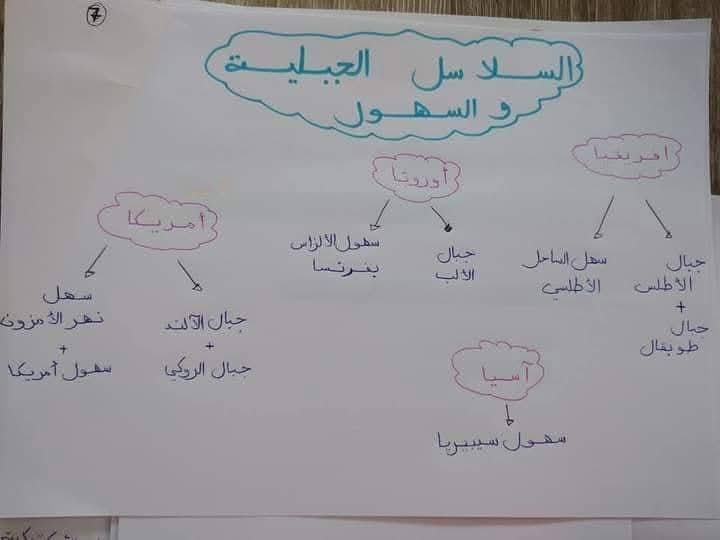 7
السلاسل الجبلية
و السهول
أفريقيا
جبال
الأطلس
+
جبال
طوبقال
سهل الساحل
الأطلسي
أوروبا
جبال
الألب
سهول الألزاس
بفرنسا
أمريكا
جبال الآند
+
جبال الروكي
سهل
نهر الأمزون
+
سهول أمريكا
آسيا
سهول سيبيريا